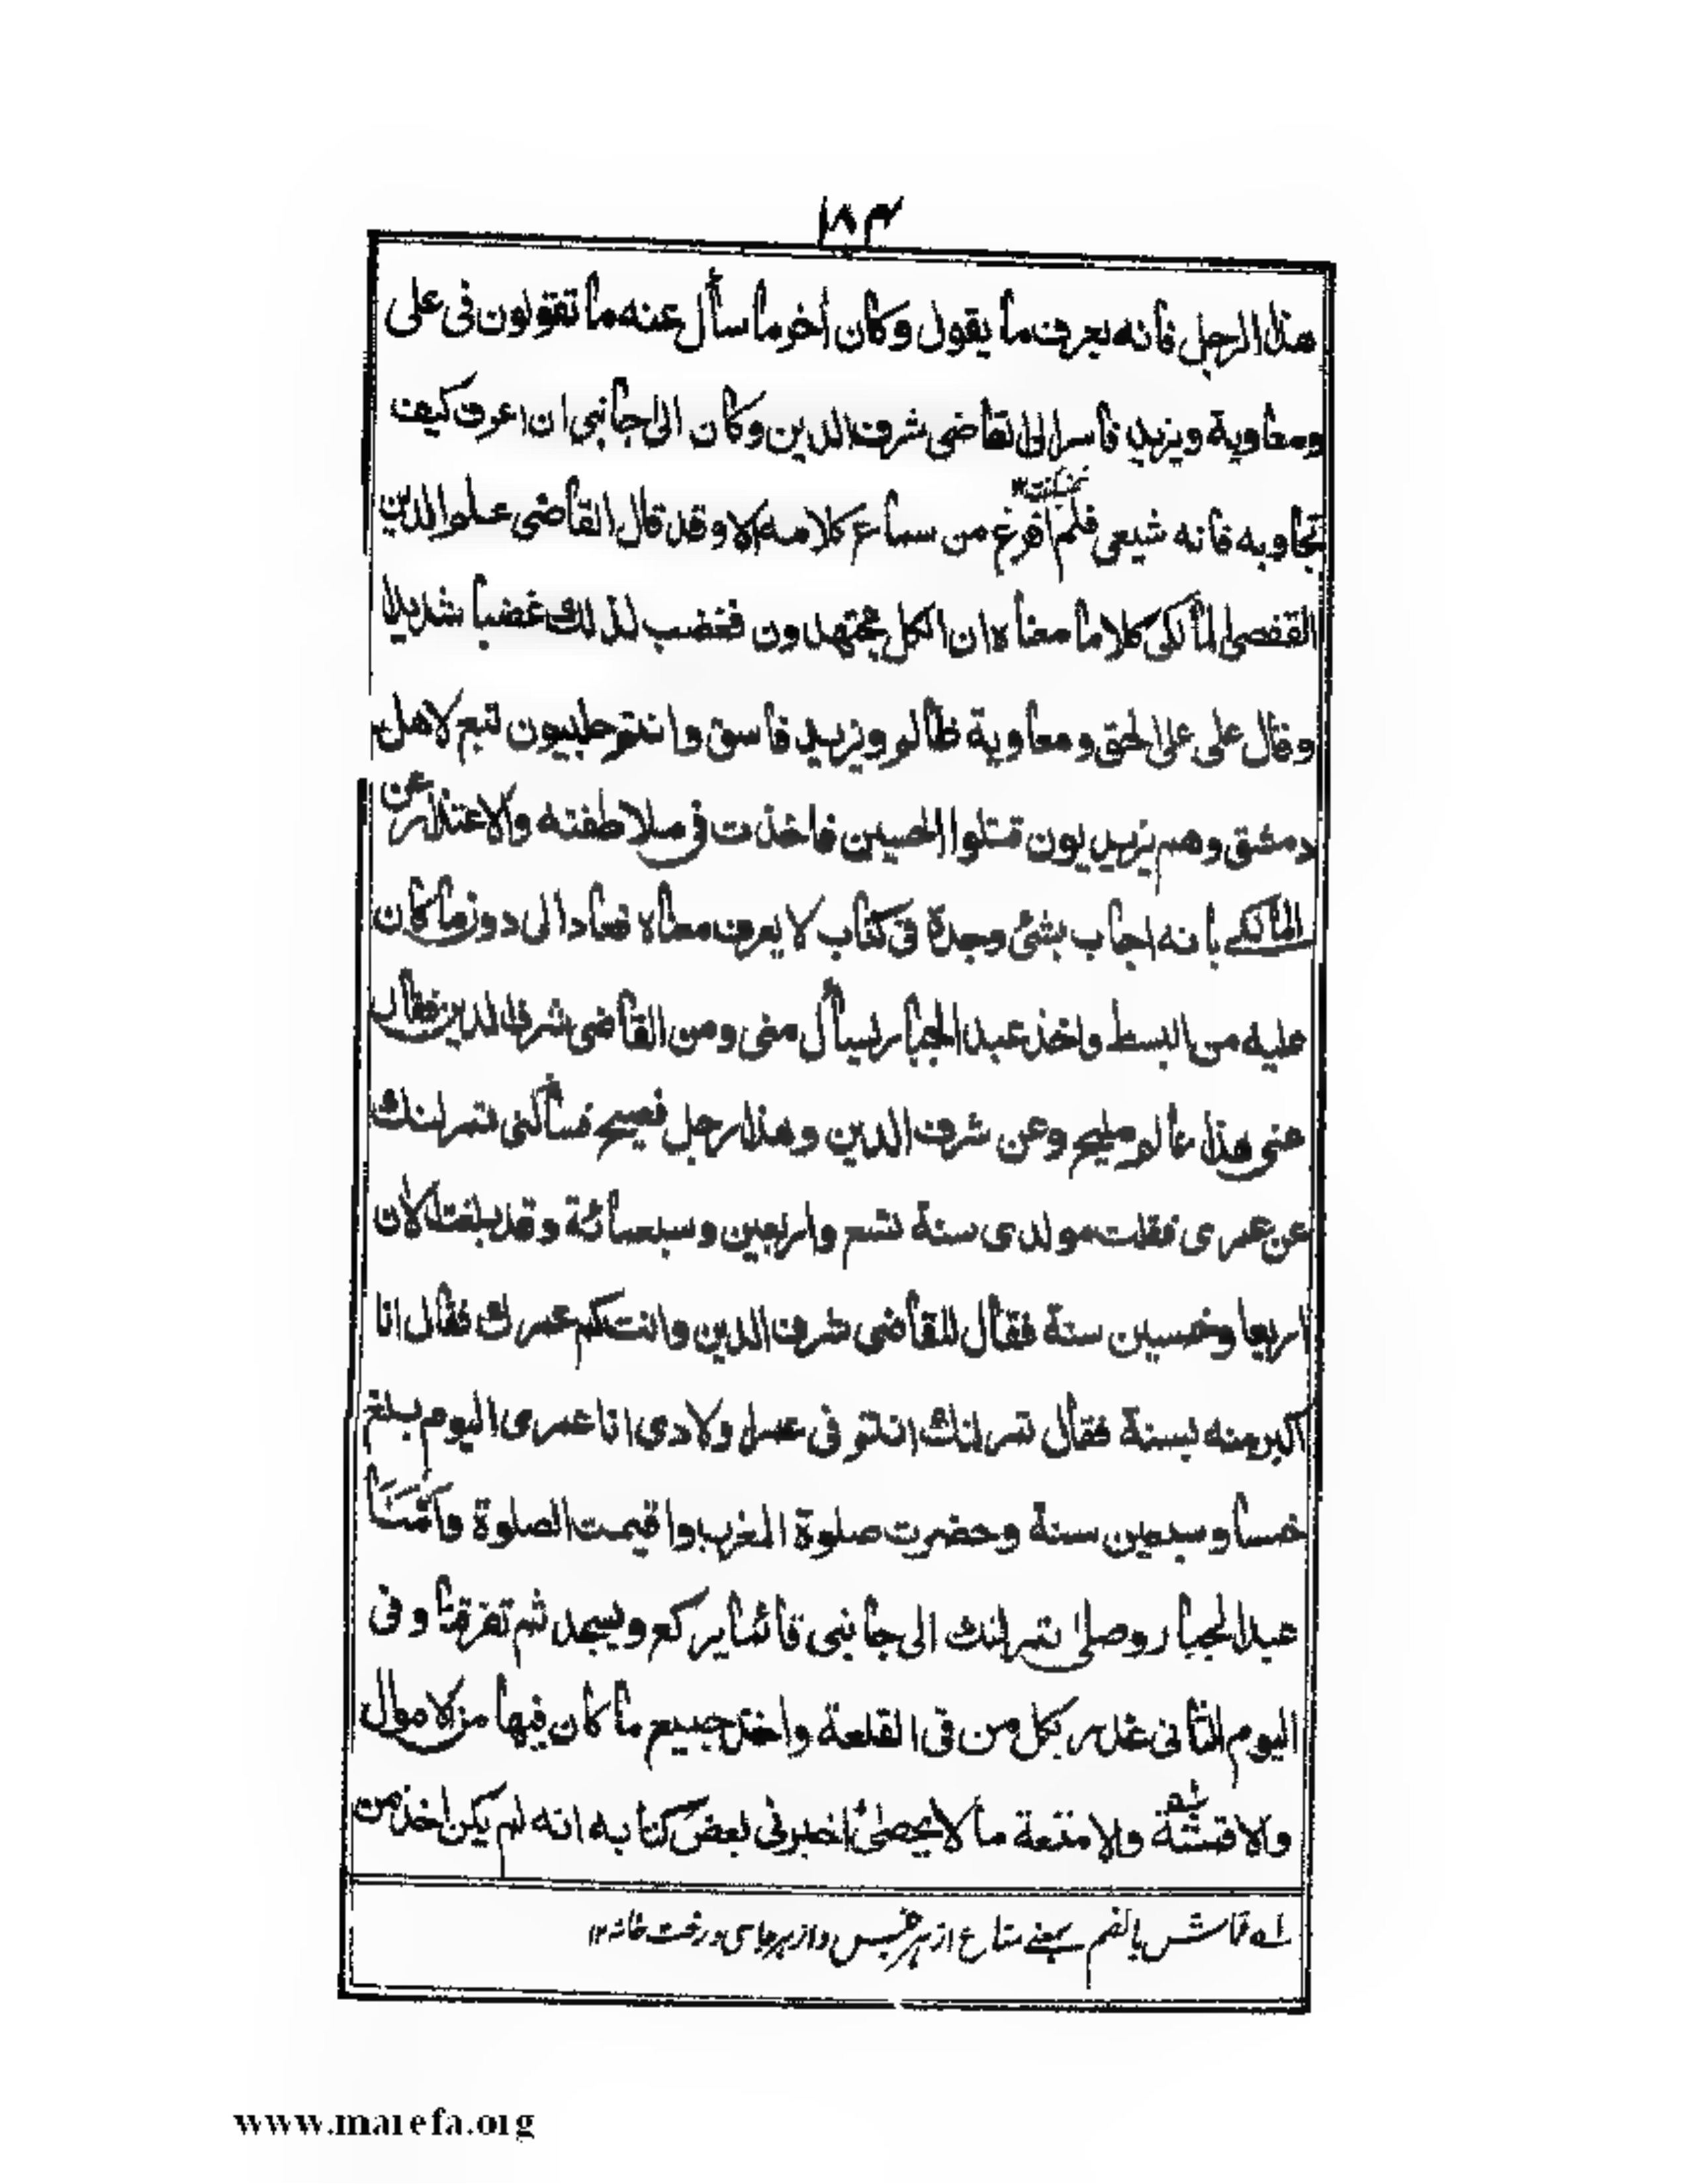 ١٨٣
هذا الرجل فانه يعرف ما يقول وكان أخر ما سأل عنه ما تقولون فى على
ومعاوية ويزيد فاسر الى القاضى شرف الدين وكان الى جانبى ان اعرف كيف
تجاوبه فانه شيعى فلم افرغ من سماع كلامه الا وقد قال القاضى علم الدين
القفصى المالكى كلاما معناه ان الكل مجتهدون فغضب لذلك غضبا شديدا
وقال على على الحق ومعاوية ظالم ويزيد فاسق وانتم حلبيون تبع لاهل
دمشق وهم يزيديون قتلوا الحسين فاخذت فى ملاطفته والاعتذار عن
المالكى بانه اجاب بشئ وجدة فى كتاب لا يعرف معناه فعاد الى دون ما كان
عليه من البسط واخذ عبد الجبار ليسأل منى ومن القاضى شرف الدين فقال
عنى هذا عالم مليح وعن شرف الدين وهذا رجل فصيح فسألنى تمر لنك
عن عمرى فقلت مولدى سنة تسع واربعين وسبعمائة وقد بلغت الان
اربعا وخمسين سنة فقال للقاضى شرف الدين وانت كم عمرك فقال انا
اكبر منه بسنة فقال تمر لنك انتم فى عمر اولادى انا عمرى اليوم بلغ
خمسا وسبعين سنة وحضرت صلوة المغرب واقيمت الصلوة وامنا
عبد الجبار وصلى تمر لنك الى جانبى قائما يركع ويسجد ثم تفرقنا وفى
اليوم الثانى غدر بكل من فى القلعة واخذ جميع ما كان فيها من الاموال
والاقمشة والامتعة ما لا يحصى اخبرنى بعض كتابه انه لم يكن اخذ من
قماش بالضم بمعنے متاع از هر جنس و از هر جاسی و رخت خانه ١٢
www.marefa.org